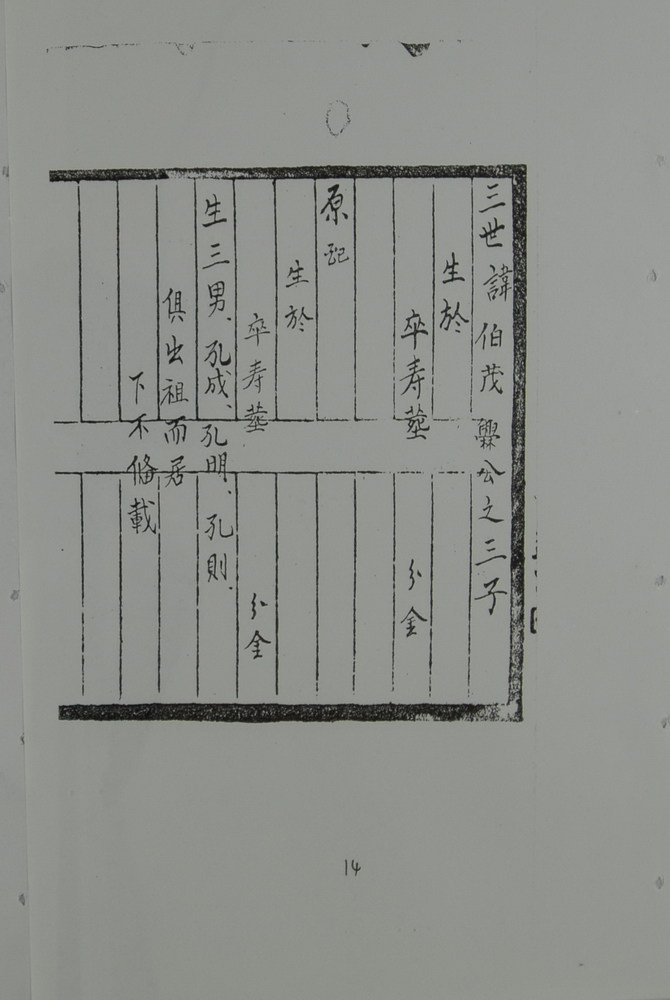 三世諱伯茂㸑公之三子
生於
卒寿塟 分金
原配
生於
卒寿塟 分金
生三男、孔成、孔明、孔則.
俱出祖而居
下不俻載
14